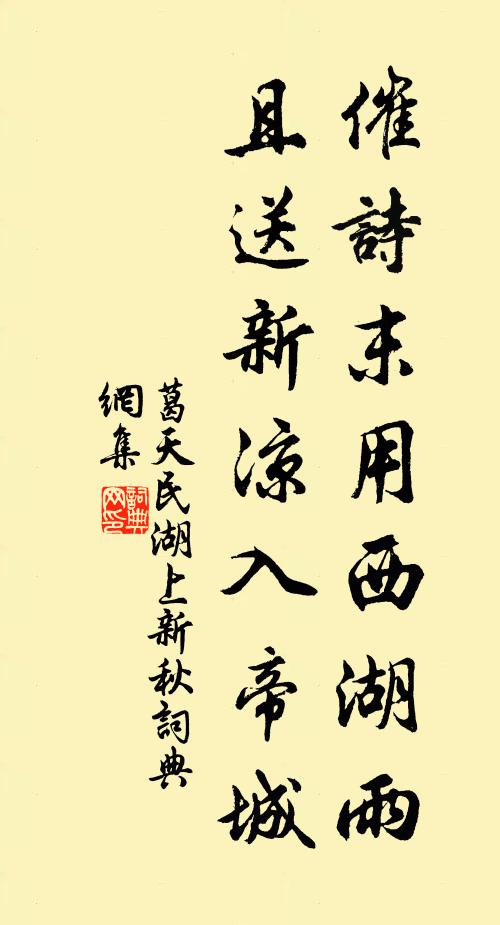 催詩未用西湖雨
且送新涼入帝城
葛天民湖上新秋詞典
網集
詞典
网印